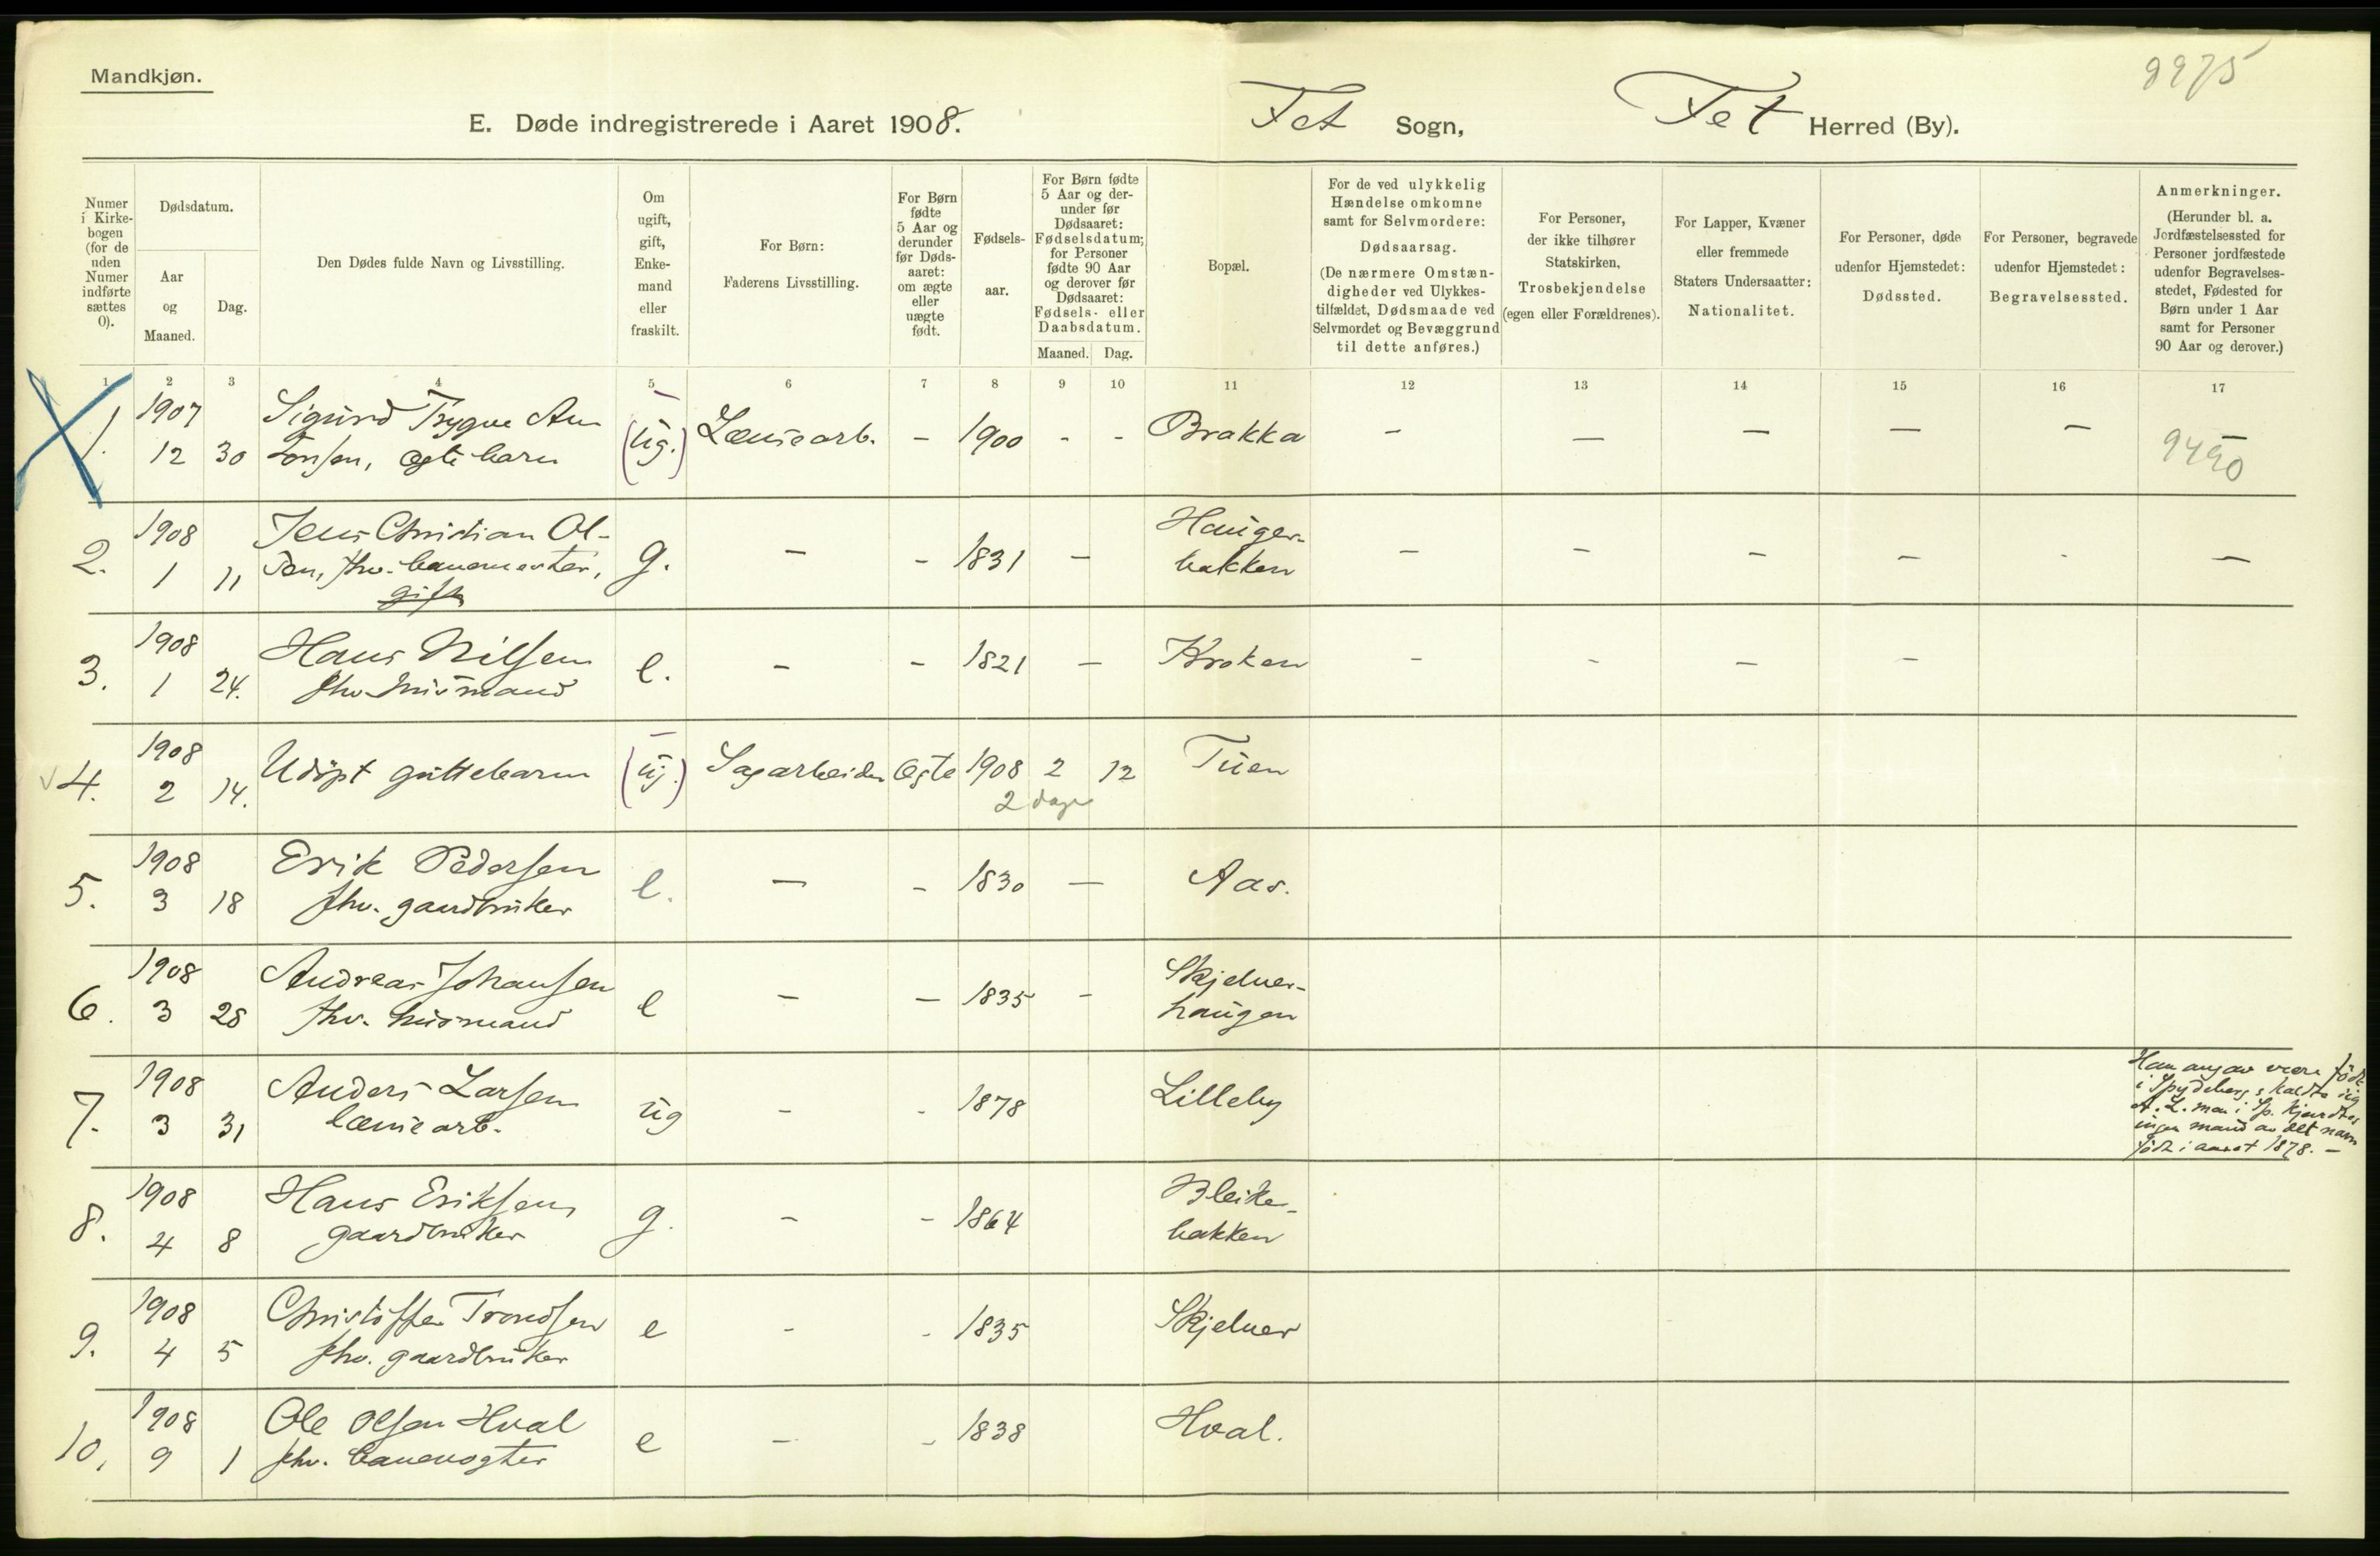 Mandkjøn.
9975
E. Døde indregistrerede i Aaret 1908.
Fet Sogn, Fet Herred (By).
Numer i Kirkebogen (for de uden Numer indførte sættes 0).
Dødsdatum.
Aar og Maaned.
Dag.
Den Dødes fulde Navn og Livsstilling.
Om ugift, gift, Enkemand eller fraskilt.
For Børn: Faderens Livsstilling.
For Børn fødte 5 Aar og derunder før Dødsaaret: om ægte eller uægte født.
Fødselsaar.
For Børn fødte 5 Aar og derunder før Dødsaaret: Fødselsdatum; for Personer fødte 90 Aar og derover før Dødsaaret: Fødsels- eller Daabsdatum.
Maaned. Dag.
Bopæl.
For de ved ulykkelig Hændelse omkomne samt for Selvmordere: Dødsaarsag. (De nærmere Omstændigheder ved Ulykkestilfældet, Dødsmaade ved Selvmordet og Bevæggrund til dette anføres.)
For Personer, der ikke tilhører Statskirken, Trosbekjendelse (egen eller Forældrenes).
For Lapper, Kvæner eller fremmede Staters Undersaatter: Nationalitet.
For Personer, døde udenfor Hjemstedet: Dødssted.
For Personer, begravede udenfor Hjemstedet: Begravelsessted.
Anmerkninger. (Herunder bl. a. Jordfæstelsessted for Personer jordfæstede udenfor Begravelsesstedet, Fødested for Børn under 1 Aar samt for Personer 90 Aar og derover.)
1 2 3 4 5 6 7 8 9 10 11 12 13 14 15 16 17
1. 1907 12 30 Sigurd Trygve An
tonsen, ægte barn (ug.) Lænsearb. - 1900 - - Brakka - - - - - -
9490
2. 1908 1 11 Jens Christian Ol-
sen, fhv. banemester, g. - - 1831 - Hauger-
bakken - - - - - -
gift
3. 1908 1 24. Hans Nilsen
fhv. husmand e. - - 1821 - Kroken - - - -
4. 1908 2 14. Udöpt guttebarn (ug.) Sagarbeider Ægte 1908 2 12 Tuen
2 dage
5. 1908 3 18 Erik Pedersen
fhv. gaardbruker e. - - 1830 - Aas.
6. 1908 3 28 Andreas Johansen
fhv. husmand e - - 1835 - Skjelver-
haugen
7. 1908 3 31 Anders Larsen
lænsearb. ug - - 1878 Lilleby
Han angav være född
i Spydeberg & kaldte sig
A. L. men i Sp. kjendtes
ingen mand av det navn
född i aaret 1878. -
8. 1908 4 8 Hans Eriksen,
gaardbruker g. - - 1864 Bleike-
bakken
9. 1908 4 5 Christoffer Trondsen
fhv. gaardbruker e - - 1835 Skjelver
10. 1908 9 1 Ole Olsen Hval
fhv. banevogter e - - 1838 Hval.